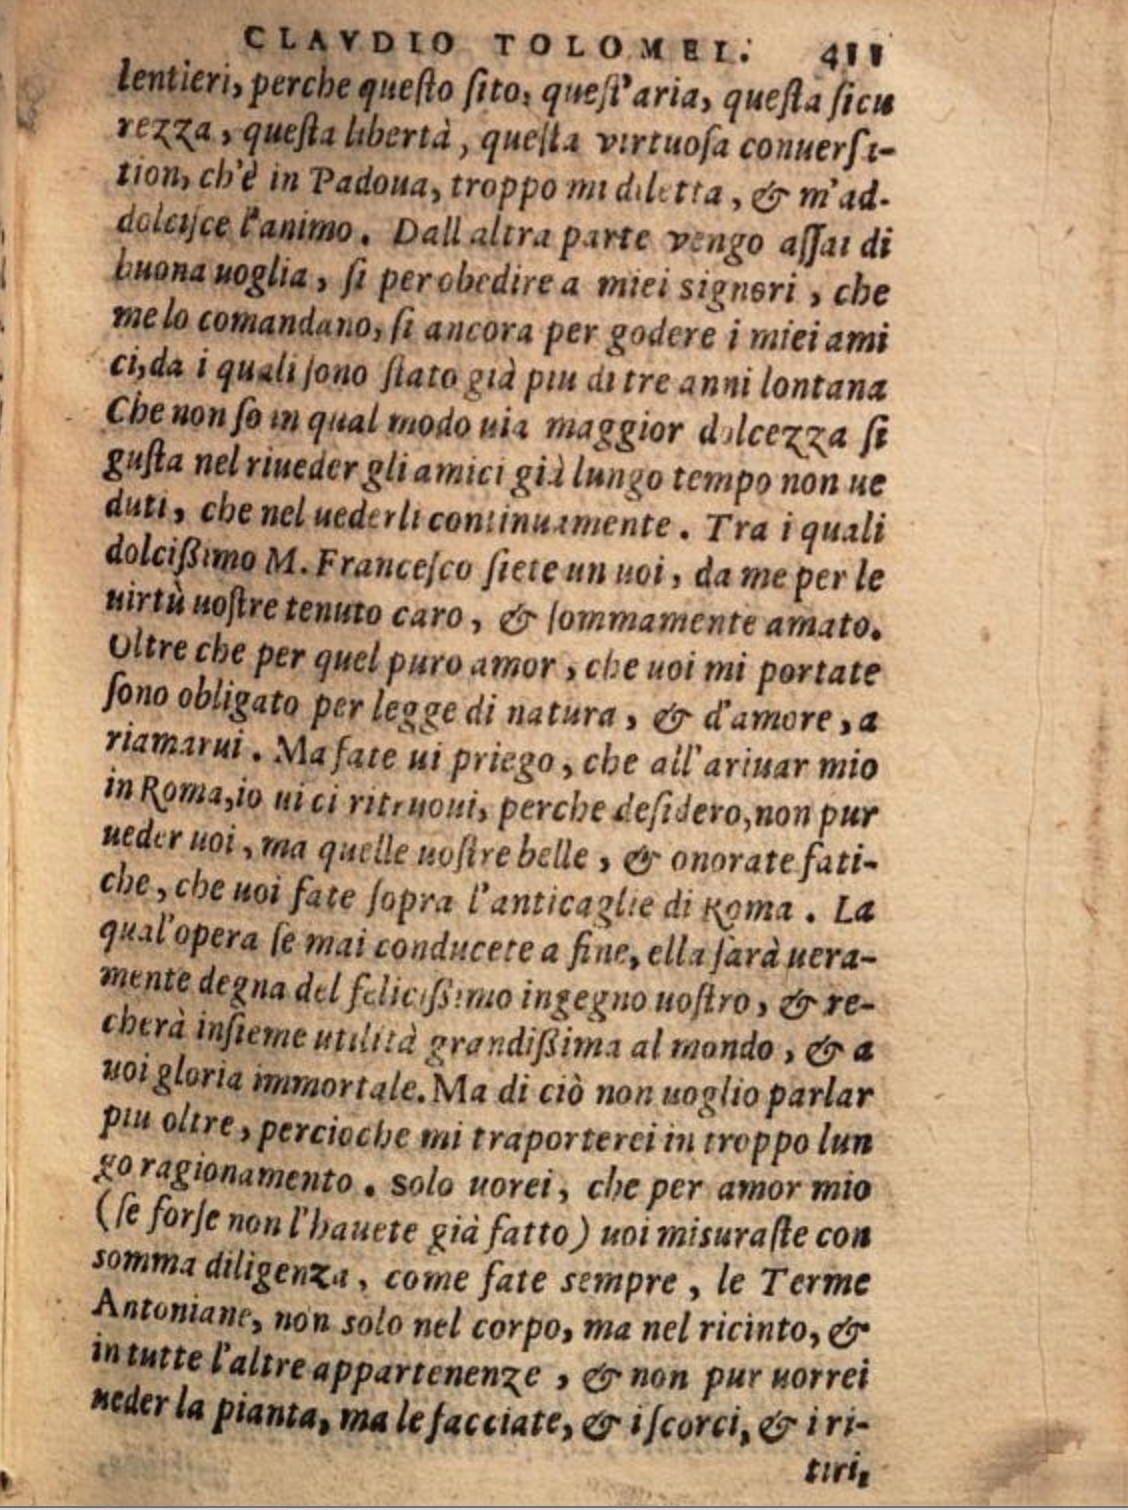 CLAVDIO TOLOMEI. 411
lentieri, perche queſto ſito, queſt'aria, queſta ſicu
rezza, queſta libertà, queſta virtuoſa conuerſa-
tion, ch'è in Padoua, troppo mi diletta, & m'ad-
dolciſce l'animo. Dall altra parte vengo aſſai di
buona uoglia, ſi per obedire a miei signori, che
me lo comandano, ſi ancora per godere i miei ami
ci, da i quali ſono ſtato già piu di tre anni lontana
Che non ſo in qual modo uia maggior dolcezza ſi
guſta nel riueder gli amici già lungo tempo non ue
duti, che nel uederli continuamente. Tra i quali
dolcißimo M. Franceſco ſiete un uoi, da me per le
uirtù uoſtre tenuto caro, & ſommamente amato.
Oltre che per quel puro amor, che uoi mi portate
ſono obligato per legge di natura, & d'amore, a
riamarui. Ma fate ui priego, che all'ariuar mio
in Roma, io ui ci ritruoui, perche deſidero, non pur
ueder uoi, ma quelle uoſtre belle, & onorate fati-
che, che uoi fate ſopra l'anticaglie di Roma. La
qual'opera ſe mai conducete a fine, ella ſarà uera-
mente degna del felicißimo ingegno uoſtro, & re-
cherà inſieme utilità grandißima al mondo, & a
uoi gloria immortale. Ma di ciò non uoglio parlar
piu oltre, percioche mi traporterei in troppo lun
go ragionamento. solo uorei, che per amor mio
(ſe forſe non l'hauete già fatto) uoi misuraſte con
somma diligenza, come fate sempre, le Terme
Antoniane, non solo nel corpo, ma nel ricinto, &
in tutte l'altre appartenenze, & non pur uorrei
ueder la pianta, ma le facciate, & i ſcorci, & i ri-
tiri,